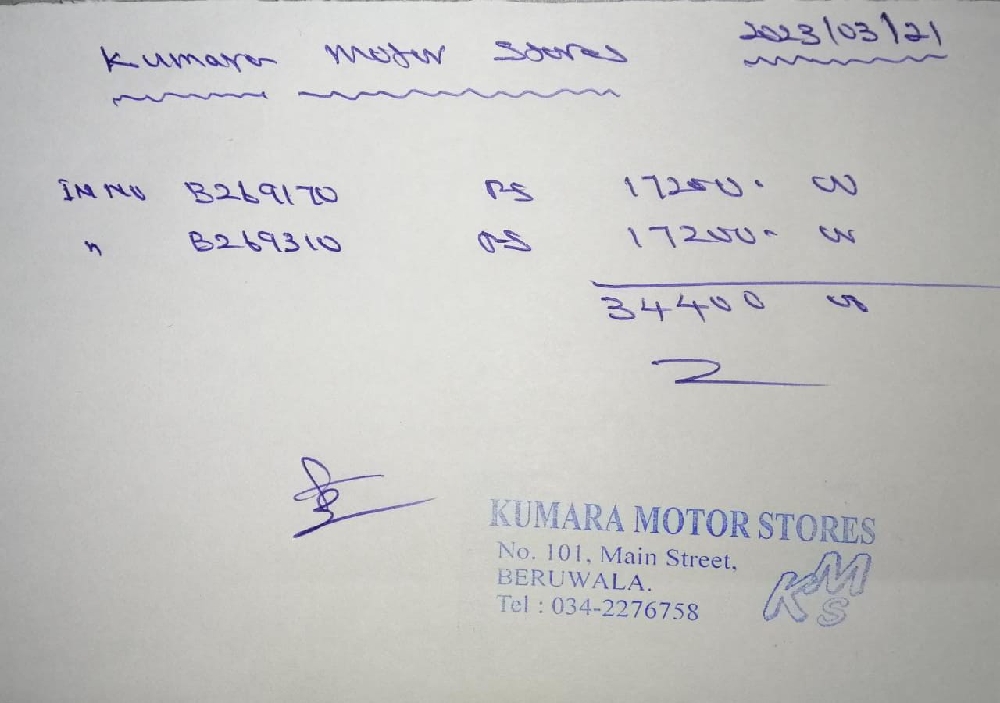 Kumara Motor Stores 2023/03/21
IN NO B269170 RS 17200. 00
" B269310 RS 17200. 00
34400 00
KUMARA MOTOR STORES
No. 101, Main Street,
BERUWALA.
Tel : 034-2276758
KMS